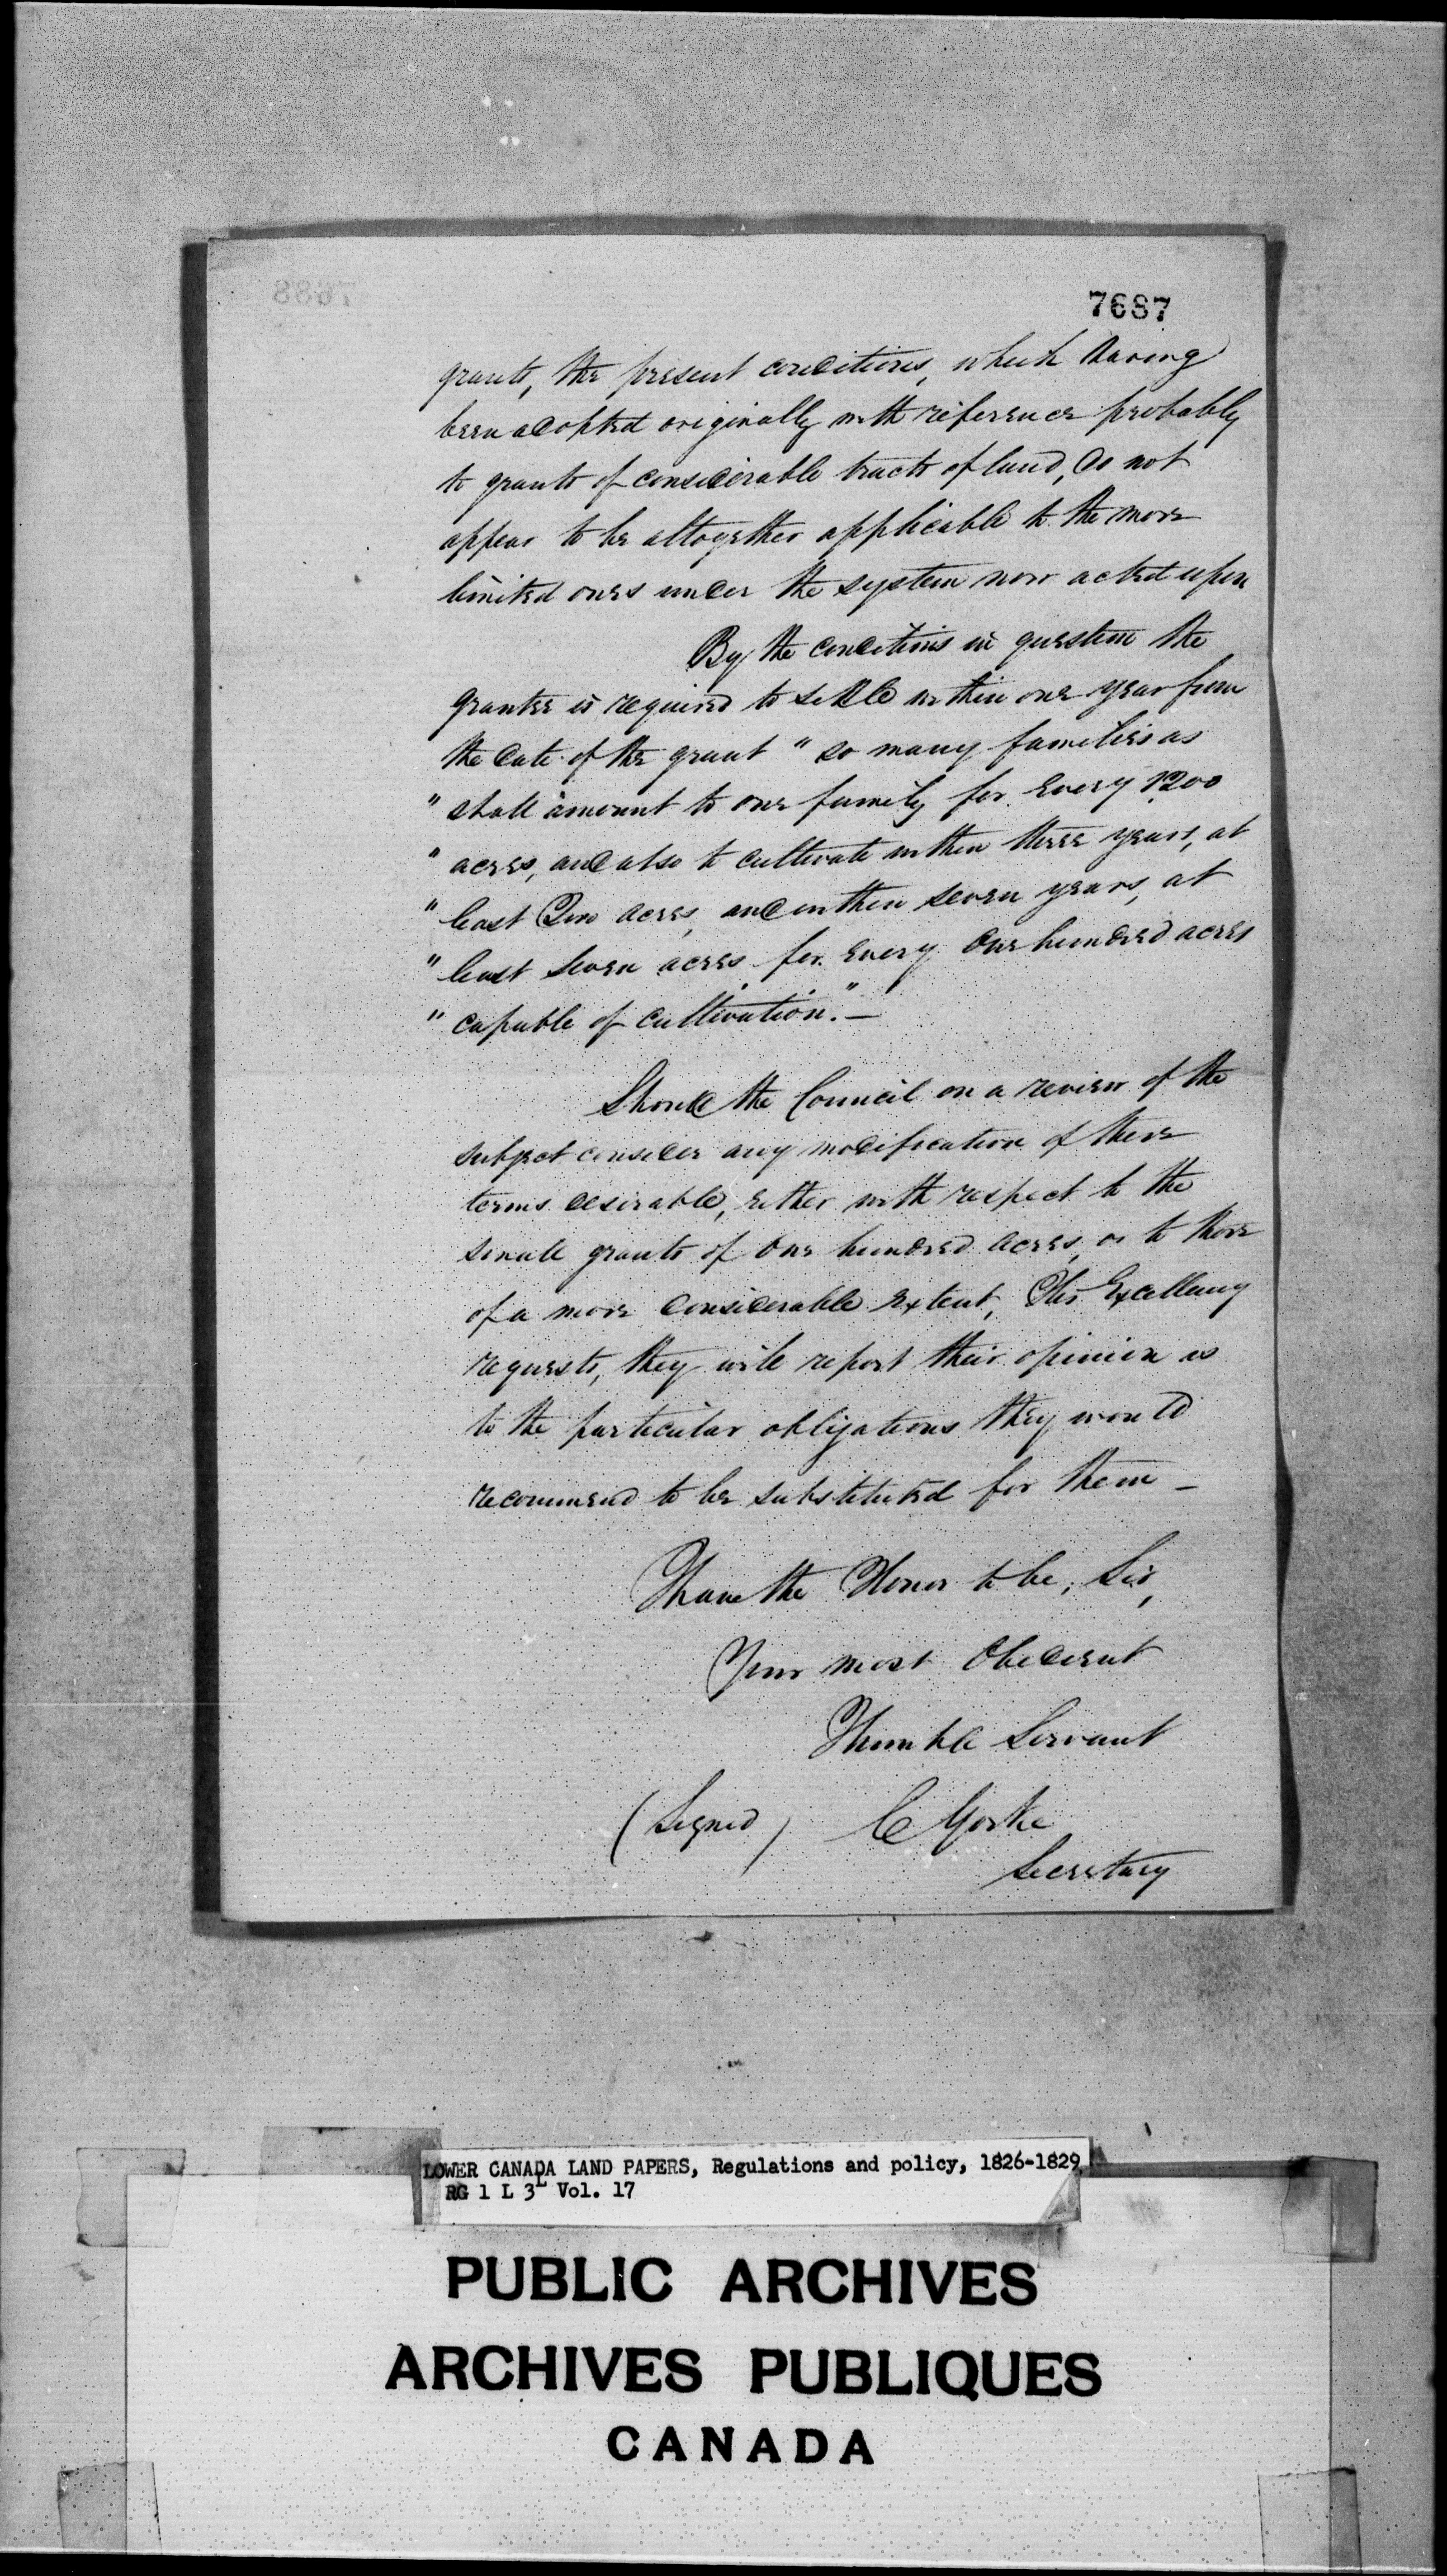 7687
grants, the present conditions, which having
been adopted originally with reference probably
to grants of considerable tracts of land, do not
appear to be altogether applicable to the more
limited ones under the system now acted upon
By the conditions in question the
grantee is required to settle within one year from
the date of the grant " so many families as
" shall amount to one family for every 1200
" acres, and also to cultivate within three years, at
" least Two acres, and within seven years, at
" least seven acres for every one hundred acres
" capable of cultivation." —
Should the Council on a review of the
subject consider any modification of these
terms desirable, either with respect to the
small grants of one hundred acres, or to those
of a more considerable extent, His Excellency
requests, they will report their opinion as
to the particular obligations they would
recommend to be substituted for them —
I have the Honor to be, Sir,
Your most Obedient
Humble Servant
(Signed) C Yorke
Secretary
LOWER CANADA LAND PAPERS, Regulations and policy, 1826-1829
RG 1 L 3L Vol. 17
PUBLIC ARCHIVES
ARCHIVES PUBLIQUES
CANADA